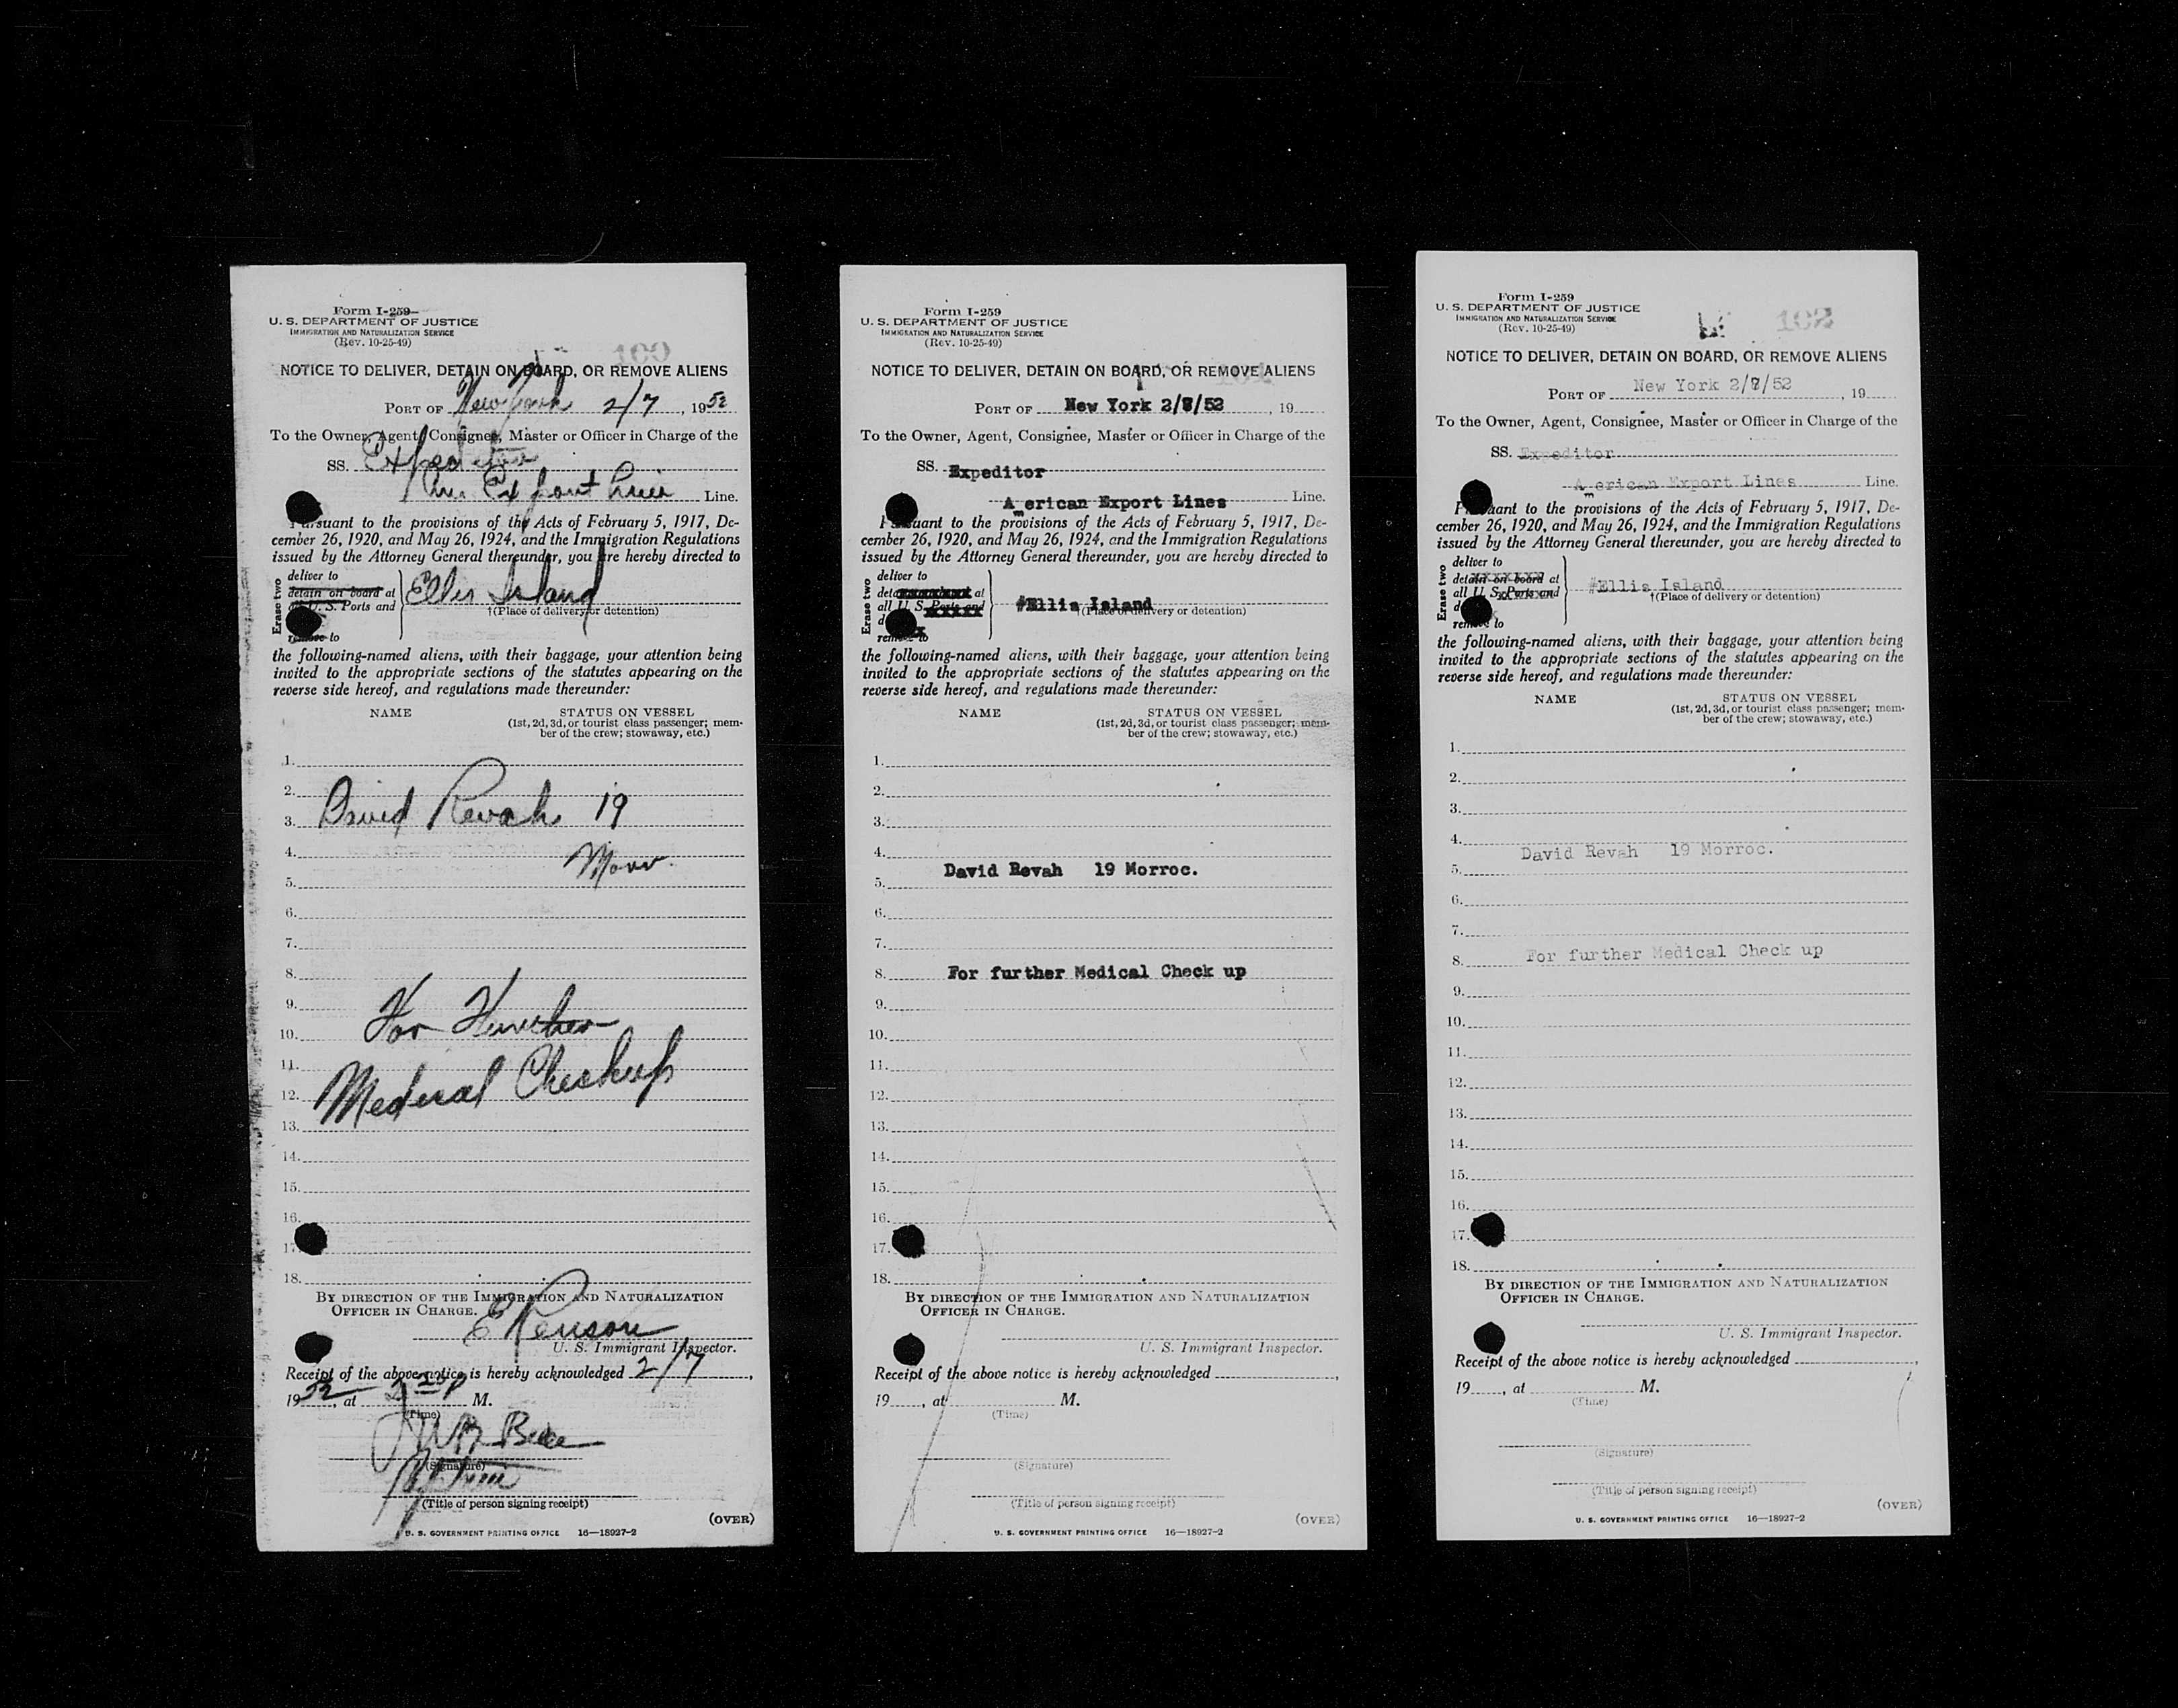 Form I-259
U. S. DEPARTMENT OF JUSTICE
IMMIGRATION AND NATURALIZATION SERVICE
(Rev. 10-25-49)
100
NOTICE TO DELIVER, DETAIN ON BOARD, OR REMOVE ALIENS
PORT OF New York 2/7, 1952
To the Owner, Agent, Consignee, Master or Officer in Charge of the
SS. Expeditor
Am. Export Lines Line.
Pursuant to the provisions of the Acts of February 5, 1917, De-
cember 26, 1920, and May 26, 1924, and the Immigration Regulations
issued by the Attorney General thereunder, you are hereby directed to
Erase two
deliver to
detain on board at
all U. S. Ports and
remove to
Ellis Island
†(Place of delivery or detention)
the following-named aliens, with their baggage, your attention being
invited to the appropriate sections of the statutes appearing on the
reverse side hereof, and regulations made thereunder:
NAME STATUS ON VESSEL
(1st, 2d, 3d, or tourist class passenger; mem-
ber of the crew; stowaway, etc.)
1.
2.
3. David Revah 19
4. Morr.
5.
6.
7.
8.
9.
10. For Further
11.
12. Medical Checkup
13.
14.
15.
16.
17.
18.
BY DIRECTION OF THE IMMIGRATION AND NATURALIZATION
OFFICER IN CHARGE.
E Renson
U. S. Immigrant Inspector.
Receipt of the above notice is hereby acknowledged 2/7,
1952, at M.
(Time)
(Signature)
(Title of person signing receipt)
(OVER)
U. S. GOVERNMENT PRINTING OFFICE 16—18927-2
Form I-259
U. S. DEPARTMENT OF JUSTICE
IMMIGRATION AND NATURALIZATION SERVICE
(Rev. 10-25-49)
NOTICE TO DELIVER, DETAIN ON BOARD, OR REMOVE ALIENS
PORT OF New York 2/8/52, 19
To the Owner, Agent, Consignee, Master or Officer in Charge of the
SS. Expeditor
American Export Lines Line.
Pursuant to the provisions of the Acts of February 5, 1917, De-
cember 26, 1920, and May 26, 1924, and the Immigration Regulations
issued by the Attorney General thereunder, you are hereby directed to
Erase two
deliver to
detxxxxxxxx at
all U. S. Ports and
remove to
#Ellis Island
†(Place of delivery or detention)
the following-named aliens, with their baggage, your attention being
invited to the appropriate sections of the statutes appearing on the
reverse side hereof, and regulations made thereunder:
NAME STATUS ON VESSEL
(1st, 2d, 3d, or tourist class passenger; mem-
ber of the crew; stowaway, etc.)
1.
2.
3.
4.
David Revah 19 Morroc.
5.
6.
7.
8. For further Medical Check up
9.
10.
11.
12.
13.
14.
15.
16.
17.
18.
BY DIRECTION OF THE IMMIGRATION AND NATURALIZATION
OFFICER IN CHARGE.
U. S. Immigrant Inspector.
Receipt of the above notice is hereby acknowledged ,
19 , at M.
(Time)
(Signature)
(Title of person signing receipt)
(OVER)
U. S. GOVERNMENT PRINTING OFFICE 16—18927-2
Form I-259
U. S. DEPARTMENT OF JUSTICE
IMMIGRATION AND NATURALIZATION SERVICE
(Rev. 10-25-49)
102
NOTICE TO DELIVER, DETAIN ON BOARD, OR REMOVE ALIENS
PORT OF New York 2/8/52, 19
To the Owner, Agent, Consignee, Master or Officer in Charge of the
SS. Expeditor
American Export Lines Line.
Pursuant to the provisions of the Acts of February 5, 1917, De-
cember 26, 1920, and May 26, 1924, and the Immigration Regulations
issued by the Attorney General thereunder, you are hereby directed to
Erase two
deliver to
detain on board at
all U. S. Ports and
remove to
#Ellis Island
†(Place of delivery or detention)
the following-named aliens, with their baggage, your attention being
invited to the appropriate sections of the statutes appearing on the
reverse side hereof, and regulations made thereunder:
NAME STATUS ON VESSEL
(1st, 2d, 3d, or tourist class passenger; mem-
ber of the crew; stowaway, etc.)
1.
2.
3.
4.
David Revah 19 Morroc.
5.
6.
7.
8. For further Medical Check up
9.
10.
11.
12.
13.
14.
15.
16.
17.
18.
BY DIRECTION OF THE IMMIGRATION AND NATURALIZATION
OFFICER IN CHARGE.
U. S. Immigrant Inspector.
Receipt of the above notice is hereby acknowledged ,
19 , at M.
(Time)
(Signature)
(Title of person signing receipt)
(OVER)
U. S. GOVERNMENT PRINTING OFFICE 16—18927-2